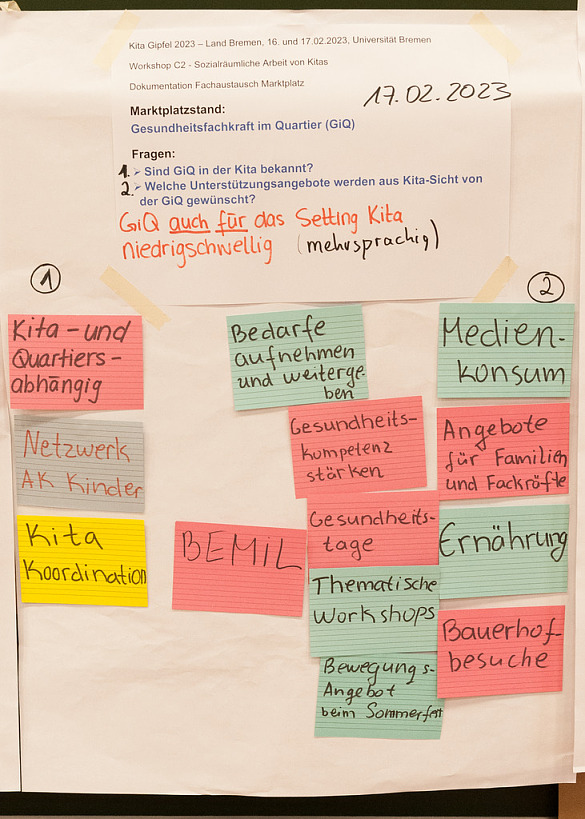 Kita Gipfel 2023 – Land Bremen, 16. und 17.02.2023, Universität Bremen
Workshop C2 - Sozialräumliche Arbeit von Kitas
Dokumentation Fachaustausch Marktplatz
17.02.2023
Marktplatzstand:
Gesundheitsfachkraft im Quartier (GiQ)
Fragen:
1. ➢ Sind GiQ in der Kita bekannt?
2. ➢ Welche Unterstützungsangebote werden aus Kita-Sicht von
der GiQ gewünscht?
GiQ auch für das Setting Kita
niedrigschwellig (mehrsprachig)
1
Kita-und
Quartiers-
abhängig
Netzwerk
AK Kinder
Kita
Koordination
BEMIL
2
Bedarfe
aufnehmen
und weiterge
ben
Gesundheits-
kompetenz
stärken
Gesundheits-
tage
Thematische
Workshops
Bewegungs-
Angebot
beim Sommerfest
Medien-
konsum
Angebote
für Familien
und Fackräfte
Ernährung
Bauerhof-
besuche